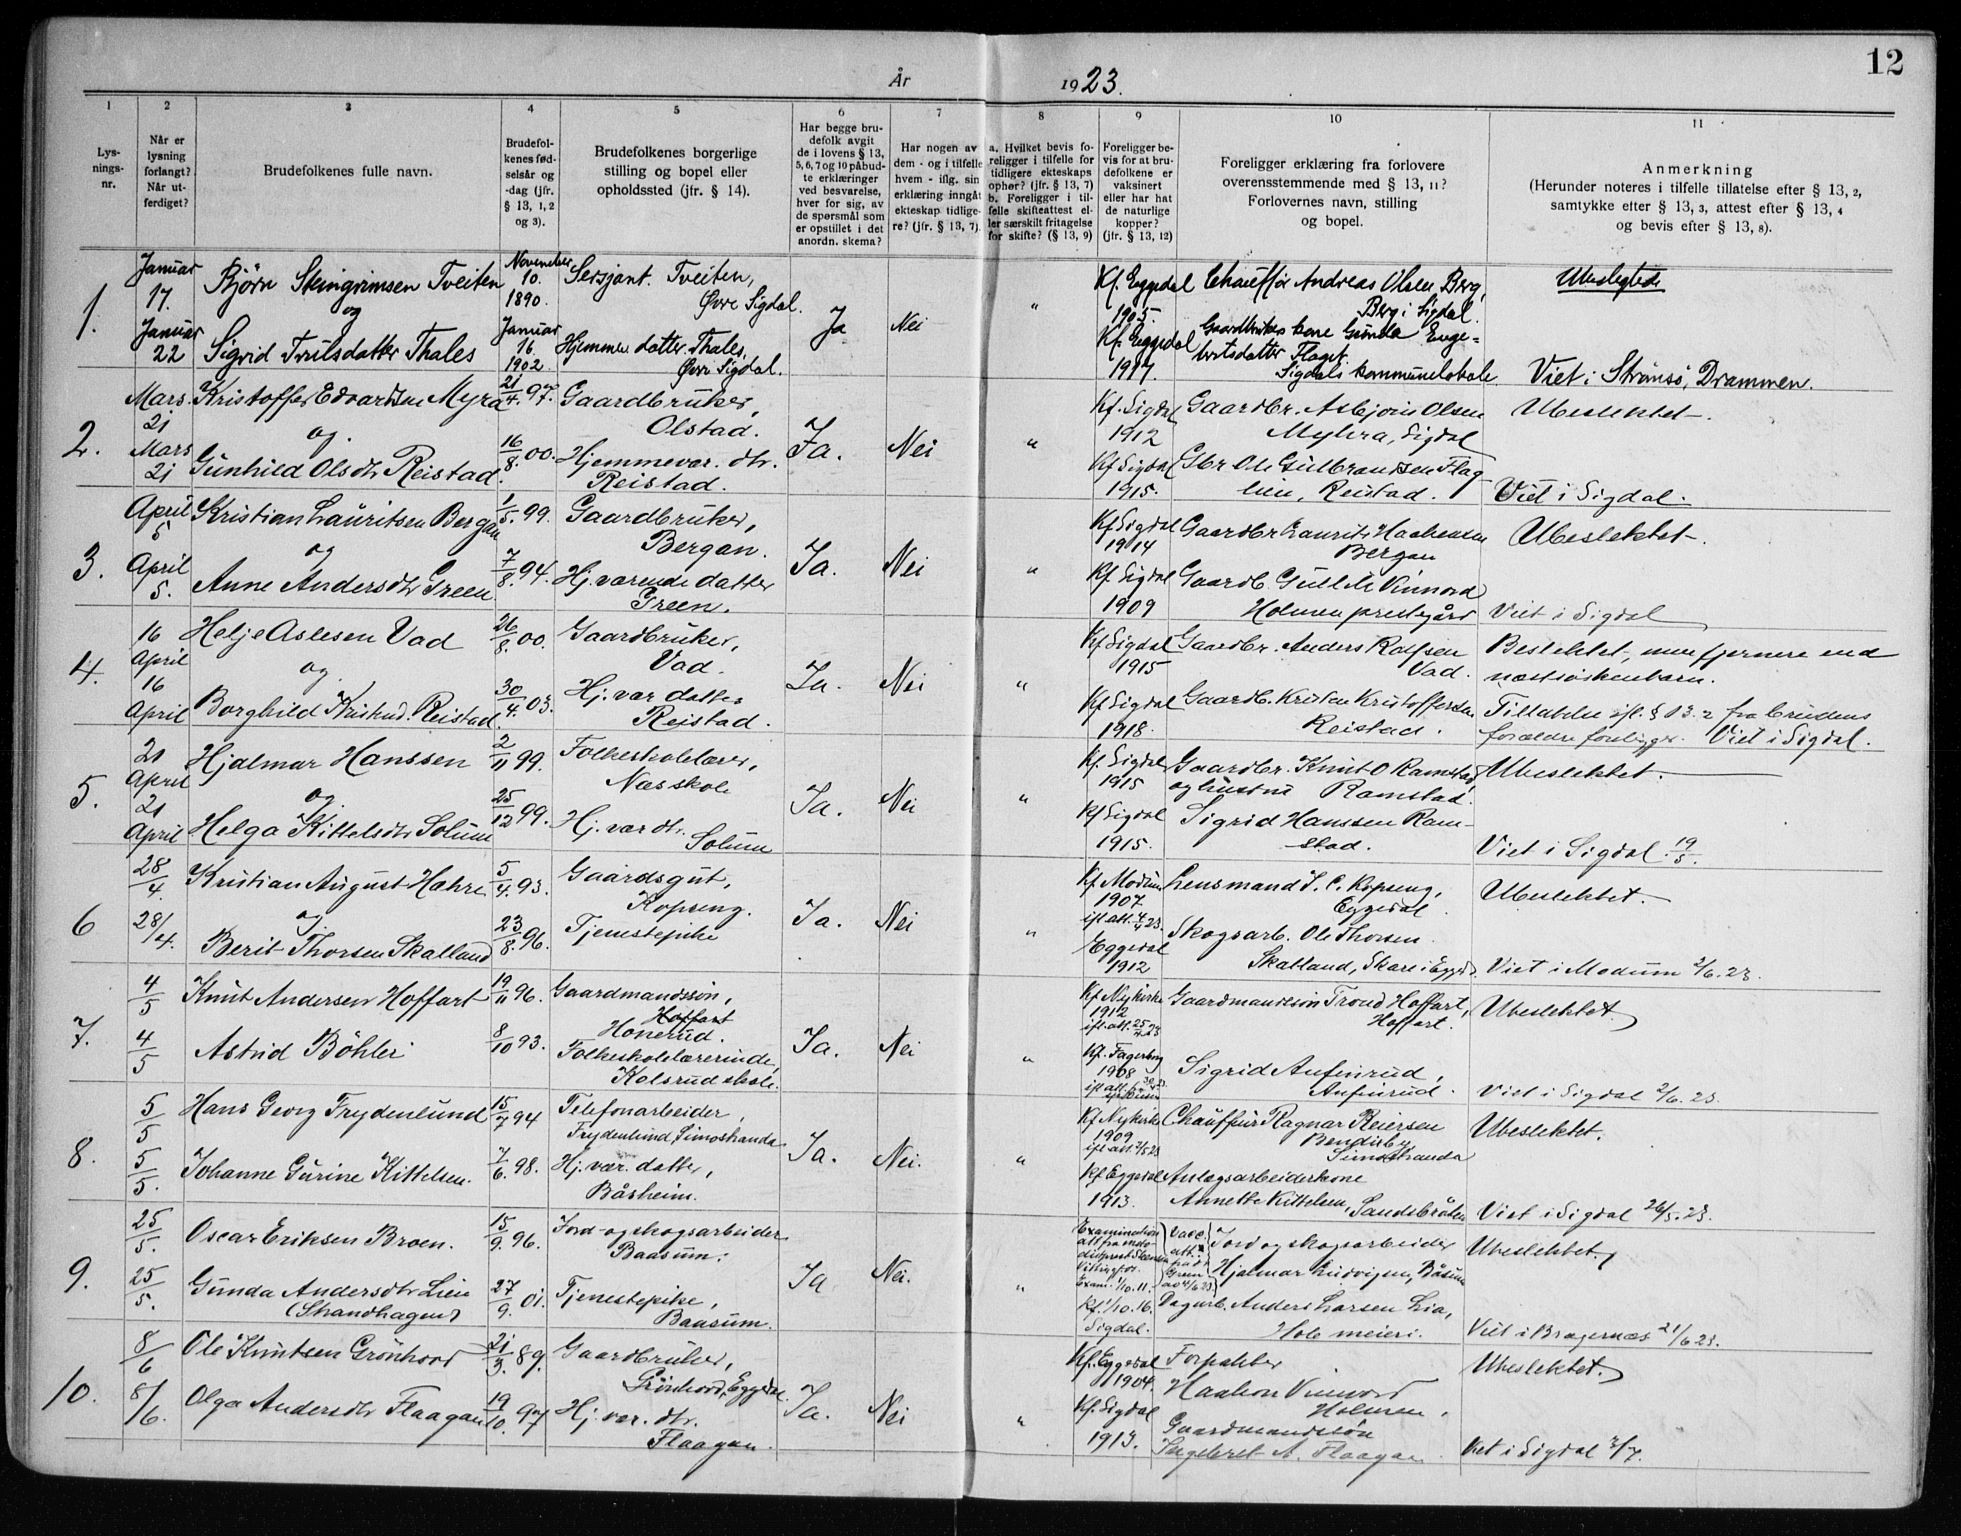 12
År 1923.
1 2 3 4 5 6 7 8 9 10 11
Lys-
nings-
nr.
Når er
lysning
forlangt?
Når ut-
ferdiget?
Brudefolkenes fulle navn.
Brudefol-
kenes fød-
selsår og
-dag (jfr.
§ 13, 1, 2
og 3).
Brudefolkenes borgerlige
stilling og bopel eller
opholdssted (jfr. § 14).
Har begge bru-
defolk avgit
de i lovens § 13,
5, 6, 7 og 10 påbud-
te erklæringer
ved besvarelse,
hver for sig, av
de spørsmål som
er opstillet i det
anordn. skema?
Har nogen av
dem - og i tilfelle
hvem - iflg. sin
erklæring inngåt
ekteskap tidlige-
re? (jfr. § 13, 7)
a. Hvilket bevis fo-
religger i tilfelle for
tidligere ekteskaps
ophør? (jfr. § 13, 7)
b. Foreligger i til-
felle skifteattest el-
ler særskilt fritagelse
for skifte? (§ 13, 9)
Foreligger be-
vis for at bru-
defolkene er
vaksinert
eller har hat
de naturlige
kopper?
(jfr. § 13, 12)
Foreligger erklæring fra forlovere
overensstemmende med § 13, 11?
Forlovernes navn, stilling
og bopel.
Anmerkning
(Herunder noteres i tilfelle tillatelse efter § 13, 2,
samtykke efter § 13, 3, attest efter § 13, 4
og bevis efter § 13, 8).
1.
Januar
17.
Januar
22
Bjørn Steingrimsen Tveiten
og
Sigrid Trulsdatter Thales
November
10.
1890.
Januar
16.
1902
Sersjant. Tveiten,
Øvre Sigdal.
Hjemmev datter. Thales,
Øvre Sigdal.
Ja
Nei
"
Kf. Eggedal
1905.
Kf. Eggedal
1917.
Chauffør Andreas Olsen Berg,
Berg i Sigdal.
Gaardbrukerkone Gunda Enge-
bretsdatter Flaget.
Sigdals kommunelokale
Ubeslegtede
Viet i Strømsø, Drammen.
2.
Mars
21
Mars
21
Kristoffer Edvardsen Myra
og
Gunhild Olsdtr Reistad.
21/4. 97.
16/8. 00.
Gaardbruker,
Olstad.
Hjemmevær. dtr.
Reistad.
Ja.
Nei
"
Kf. Sigdal
1912
Kf Sigdal
1915.
Gaardbr. Asbjørn Olsen
Myhra, Sigdal
Gbr Ole Gulbrandsen Flag
lien, Reistad.
Ubeslektet.
Viet i Sigdal.
3.
April
5
April
5.
Kristian Lauritsen Bergan
og
Anne Andersdtr Green
1/5. 99.
7/8. 94.
Gaardbruker,
Bergan.
Hj. værende datter
Green.
Ja.
Nei
"
Kf Sigdal
1914
Kf. Sigdal
1909
Gaardbr Laurits Haakensen
Bergan
Gaardb. Gulle Vinnord
Holmen prestgård
Ubeslektet.
Viet i Sigdal
4.
16
April
16
April
Helje Aslesen Vad
og
Borghild Kristend. Reistad.
26/8. 00.
30/4. 03.
Gaardbruker,
Vad.
Hj. vær datter
Reistad.
Ja.
Nei
"
Kf Sigdal
1915
Kf Sigdal
1918.
Gaardbr. Anders Rolfsen
Vad.
Gaardb. Kristen Kristoffersen
Reistad.
Beslektet, men fjernere end
næstsøskenbarn.
Tillatelse ifl. § 13. 2 fra brudens
forældre foreligger. Viet i Sigdal.
5.
21
April
21
April
Hjalmar Hanssen
og
Helga Kittelsdtr Solum
2/11 99.
25/12 99.
Folkeskolelærer,
Næsskole
Hj. vær dtr.
Solum
Ja.
Nei
"
Kf. Sigdal
1915
Kf Sigdal
1915.
Gaardbr. Knut O Ramstad
og hustru Ramstad.
Sigrid Hanssen Ram-
stad.
Ubeslektet.
Viet i Sigdal 19/5.
6
28/4.
28/4.
Kristian August Hæhre
og
Berit Thorsen Skalland
5/4. 93.
23/8. 96.
Gaardsgut,
Kopseng.
Tjenestepike
Ja.
Nei
"
Kf. Modum
1907
ifl att. 4/4 23.
Eggedal
1912
Lensmand T. C. Kopseng,
Eggedal.
Skogsarb. Ole Thorsen
Skalland, Skare i Eggd.
Ubeslektet.
Viet i Modum 2/6. 23.
7.
4/5
4/5
Knut Andersen Hoffart
Astrid Bøhler
19/11 96.
8/10 93.
Gaardmandssøn,
Hoffart
Honerud.
Folkeskolelærerinde,
Kolsrud skole.
Ja.
Nei
"
Kf Nykirke
1912
ifl. att. 25/4 23
Kf. Fagerberg
1908
Gaardmandssøn Trond Hoffart,
Hoffart.
Sigrid Anfinrud,
Anfinrud.
Ubeslektet
Viet i Sigdal 2/6. 23.
8.
5/5
5/5.
Hans Georg Frydenlund
Johanne Gurine Kittelsen.
15/7 94
7/6. 98.
Telefonarbeider,
Frydenlund, Simostranda
Hj. vær. datter,
Båsheim.
Ja.
Nei.
"
Kf Nykirke
1909
ifl. att. 2/5 23
Kf Eggedal
1913.
Chauffeur Ragnar Reiersen
Bendixby,
Simostranda
Anlægsarbeiderkone
Annette Kittelsen, Sandebråten
Ubeslektet.
Viet i Sigdal 26/5. 23.
9.
25/5.
25/5.
Oscar Eriksen Braen.
Gunda Andersdtr Lien
(Strandhagen)
15/9. 96.
27/9. 01.
Jord- og skogsarbeider
Baasum.
Tjenestepike,
Baasum.
Ja
Nei.
"
Examination
Exam. 1/10. 11.
Kf. 1/10. 16.
Sigdal.
Jord og skogsarbeider
Hjalmar Ludvigsen, Båsum
Dagarb. Anders Larsen Lia,
Hole meieri.
Ubeslektet,
Viet i Bragernæs 21/6 23.
10.
8/6
8/6.
Ole Knutsen Grønhovd
Olga Andersdtr Flaagan
21/3. 89.
19/10. 97
Gaardbruker,
Grønhovd, Eggedal.
Hj. vær. dtr.
Flaagan.
Ja.
Nei
"
Kf. Eggedal
1904.
Kf. Sigdal
1913.
Forpakter
Haakon Vinnord
Holmen,
Gaardmandssøn
Ingebret A. Flaagan
Ubeslektet.
Viet i Sigdal 7/7.